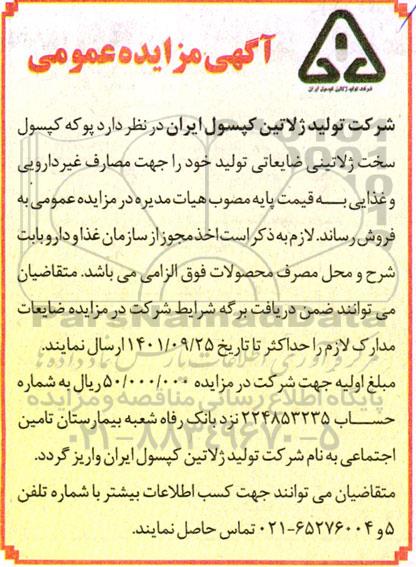 آگهی مزایده عمومی
شرکت تولید ژلاتین کپسول ایران
شرکت تولید ژلاتین کپسول ایران در نظر دارد پوکه کپسول
سخت ژلاتینی ضایعاتی تولید خود را جهت مصارف غیر دارویی
و غذایی به قیمت پایه مصوب هیات مدیره در مزایده عمومی به
فروش رساند. لازم به ذکر است اخذ مجوز از سازمان غذا و دارو بابت
شرح و محل مصرف محصولات فوق الزامی می باشد. متقاضیان
می توانند ضمن دریافت برگه شرایط شرکت در مزایده ضایعات
مدارک لازم را حداکثر تا تاریخ ۱۴۰۱/۰۹/۲۵ ارسال نمایند.
مبلغ اولیه جهت شرکت در مزایده ۵۰/۰۰۰/۰۰۰ ریال به شماره
حساب ۲۲۴۸۵۳۲۳۵ نزد بانک رفاه شعبه بیمارستان تامین
اجتماعی به نام شرکت تولید ژلاتین کپسول ایران واریز گردد.
متقاضیان می توانند جهت کسب اطلاعات بیشتر با شماره تلفن
۵ و ۰۲۱-۶۵۲۷۶۰۰۴ تماس حاصل نمایند.
ParsNamadData
پایگاه اطلاع رسانی مناقصه و مزایده
۰۲۱-۸۸۳۴۹۶۷۰-۵